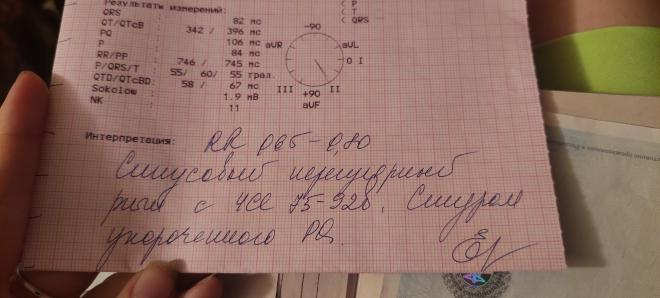 Результаты измерений:
QRS : 82 мс
QT/QTcB : 342 / 396 мс
PQ : 106 мс
P : 84 мс
RR/PP : 746 / 745 мс
P/QRS/T : 55/ 60/ 55 град.
QTD/QTcBD: 58 / 67 мс
Sokolow : 1.9 мВ
NK : 11
< P
< T
< QRS
-90
aVR aVL
0 I
III +90 II
aVF
Интерпретация: RR 065-0,80
Синусовый нерегулярный
ритм с ЧСС 75-92в. Синдром
укороченного PQ.